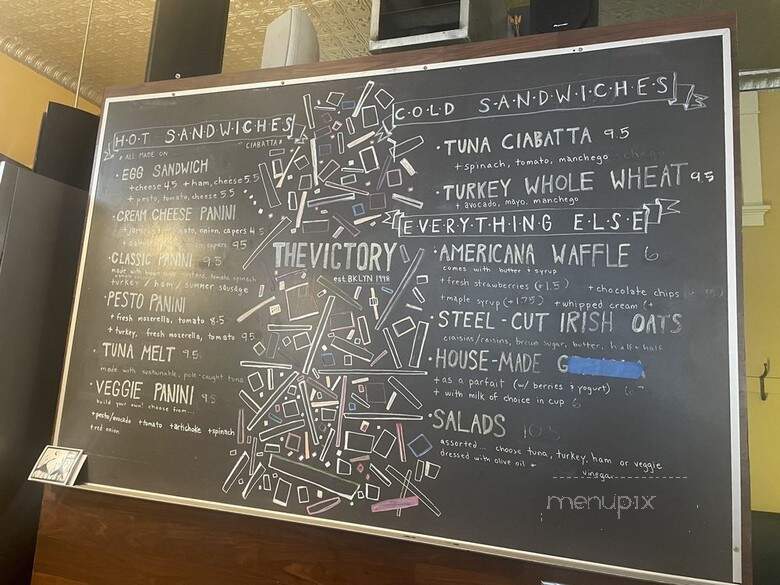 HOT SANDWICHES
* ALL MADE ON CIABATTA *
· EGG SANDWICH
+ cheese 4.5 + ham, cheese 5.5
+ pesto, tomato, cheese 5.5
· CREAM CHEESE PANINI
onion, capers 4.5
capers 9.5
· CLASSIC PANINI 9.5
made with tomato, spinach
turkey / ham / summer sausage
· PESTO PANINI
+ fresh mozerella, tomato 8.5
+ turkey, fresh mozerella, tomato 9.5
· TUNA MELT 9.5
made with sustainable, pole-caught tuna
· VEGGIE PANINI 9.5
build your own! choose from...
+pesto/avocado +tomato +artichoke +spinach
+red onion
THE VICTORY
est. BKLYN 1998
COLD SANDWICHES
· TUNA CIABATTA 9.5
+ spinach, tomato, manchego
· TURKEY WHOLE WHEAT 9.5
+ avocado, mayo, manchego
EVERYTHING ELSE
· AMERICANA WAFFLE 6
comes with butter + syrup
+ fresh strawberries (+1.5) + chocolate chips
+maple syrup (+1.75) + whipped cream (+
· STEEL-CUT IRISH OATS
craisins/raisins, brown sugar, butter, half + half
· HOUSE-MADE G
+ as a parfait (w/ berries & yogurt)
+ with milk of choice in cup 6
· SALADS 10.5
assorted... choose tuna, turkey, ham or veggie
dressed with olive oil +
vinegar
menupix